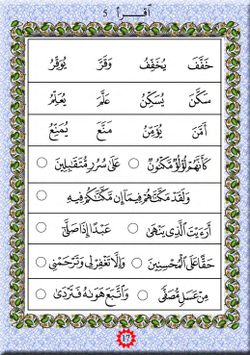 أقرأ 5
خَفَّفَ يُخَفِّفُ وَقَّرَ يُوَقِّرُ
سَكَّنَ يُسَكِّنُ عَلَّمَ يُعَلِّمُ
أَمَّنَ يُؤَمِّنُ مَنَّعَ يُمَنِّعُ
كَأَنَّهُمْ لُؤْلُؤٌ مَّكْنُونٌ ○ عَلَىٰ سُرُرٍ مُّتَقَٰبِلِينَ ○
وَلَقَدْ مَكَّنَّٰهُمْ فِيمَآ إِن مَّكَّنَّٰكُمْ فِيهِ ○
أَرَءَيْتَ ٱلَّذِى يَنْهَىٰ ○ عَبْدًا إِذَا صَلَّىٰٓ ○
حَقًّا عَلَى ٱلْمُحْسِنِينَ ○ وَإِلَّا تَغْفِرْ لِى وَتَرْحَمْنِىٓ ○
مِّنْ عَسَلٍ مُّصَفًّى ○ وَٱتَّبَعَ هَوَىٰهُ فَتَرْدَىٰ ○
17